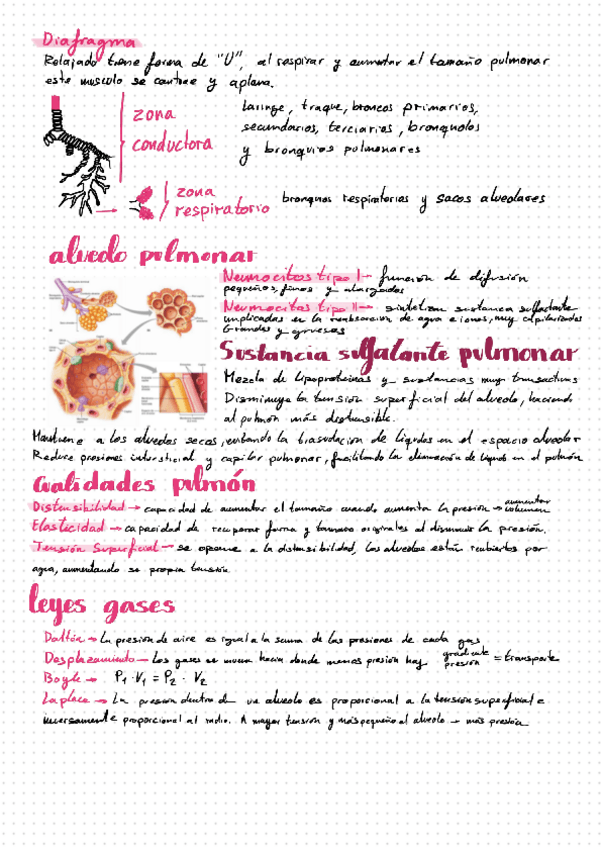 Diafragma
Relajado tiene forma de "U", al respirar y aumentar el tamaño pulmonar
este musculo se contrae y aplana.
zona
conductora
laringe, traque, broncos primarios,
secundarios, terciarios, bronquolos
y bronquios pulmonares
zona
respiratorio
bronquos respiratorias y sacos alveolares
alveolo pulmonar
Neumocitos tipo I - función de difusión
pequeños, finos y alargados
Neumocitos tipo II - sintetizan sustancia sulfactante
implicadas en la reabsorcion de agua e iones, muy capilarizados
Grandes y gruesas
Sustancia sulfatante pulmonar
Mezcla de lipoproteinas y sustancias muy
Disminuye la tensión superficial del alveolo, haciendo
al pulmón más distensible.
Mantiene a los alveolos secos, evitando la trasudacion de liquidos en el espacio alveolar
Reduce presiones intersticial y capilar pulmonar, facilitando la eliminación de liquido en el pulmón
Cualidades pulmón
Distensibilidad → capacidad de aumentar el tamaño cuando aumenta la presión → aumentar volumen
Elasticidad → capacidad de recuperar forma y tamaño originales al disminuir la presión.
Tensión Superficial → se opone a la distensibilidad, los alveolos están recubiertos por
agua, aumentando su propia tensión.
leyes gases
Dalton → La presión de aire es igual a la suma de las presiones de cada gas
Desplazamiento → Los gases se mueve hacia donde menos presión hay gradiente presión = transporte
Boyle → P₁·V₁ = P₂·V₂
Laplace → La presion dentro de un alveolo es proporcional a la tensión superficial e
inversamente proporcional al radio. A mayor tensión y más pequeño el alveolo → más presión